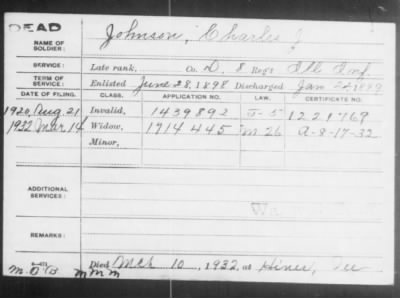 DEAD
NAME OF SOLDIER: Johnson, Charles J
SERVICE: Late rank, Co. D, 8 Reg't Ill Inf.
TERM OF SERVICE: Enlisted June 28, 1898 Discharged Jan 1899
DATE OF FILING. CLASS. APPLICATION NO. LAW. CERTIFICATE NO.
1920 Aug. 21 Invalid, 1439892 G-5 1221769
1932 Mar 14 Widow, 1714445 M 26 A-8-17-32
Minor,
ADDITIONAL SERVICES:
REMARKS:
Died Mch 10, 1932, at Hines, Ill
M M M